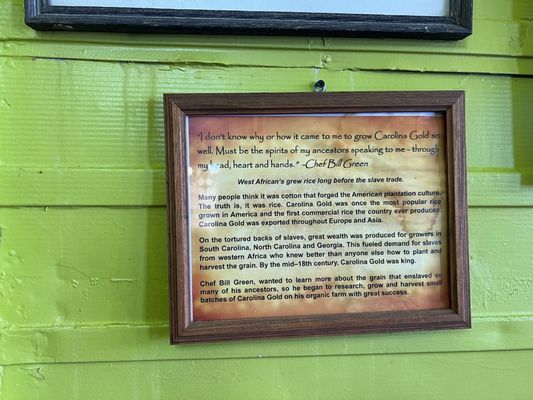 "I don't know why or how it came to me to grow Carolina Gold so
well. Must be the spirits of my ancestors speaking to me - through
my head, heart and hands." -Chef Bill Green
West African's grew rice long before the slave trade.
Many people think it was cotton that forged the American plantation culture.
The truth is, it was rice. Carolina Gold was once the most popular rice
grown in America and the first commercial rice the country ever produced.
Carolina Gold was exported throughout Europe and Asia.
On the tortured backs of slaves, great wealth was produced for growers in
South Carolina, North Carolina and Georgia. This fueled demand for slaves
from western Africa who knew better than anyone else how to plant and
harvest the grain. By the mid-18th century, Carolina Gold was king.
Chef Bill Green, wanted to learn more about the grain that enslaved so
many of his ancestors, so he began to research, grow and harvest small
batches of Carolina Gold on his organic farm with great success.